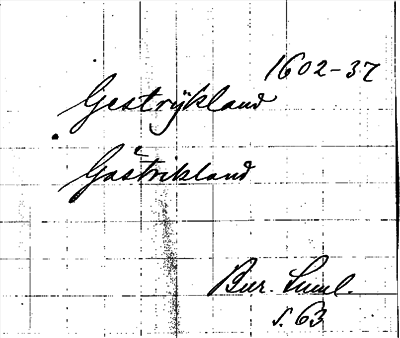 1602-37
Gestrÿkland
Gästrikland
Bur. Suml.
s. 63